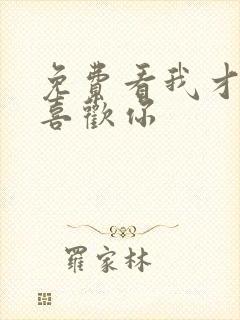 免費看我才
喜歡你
羅家林